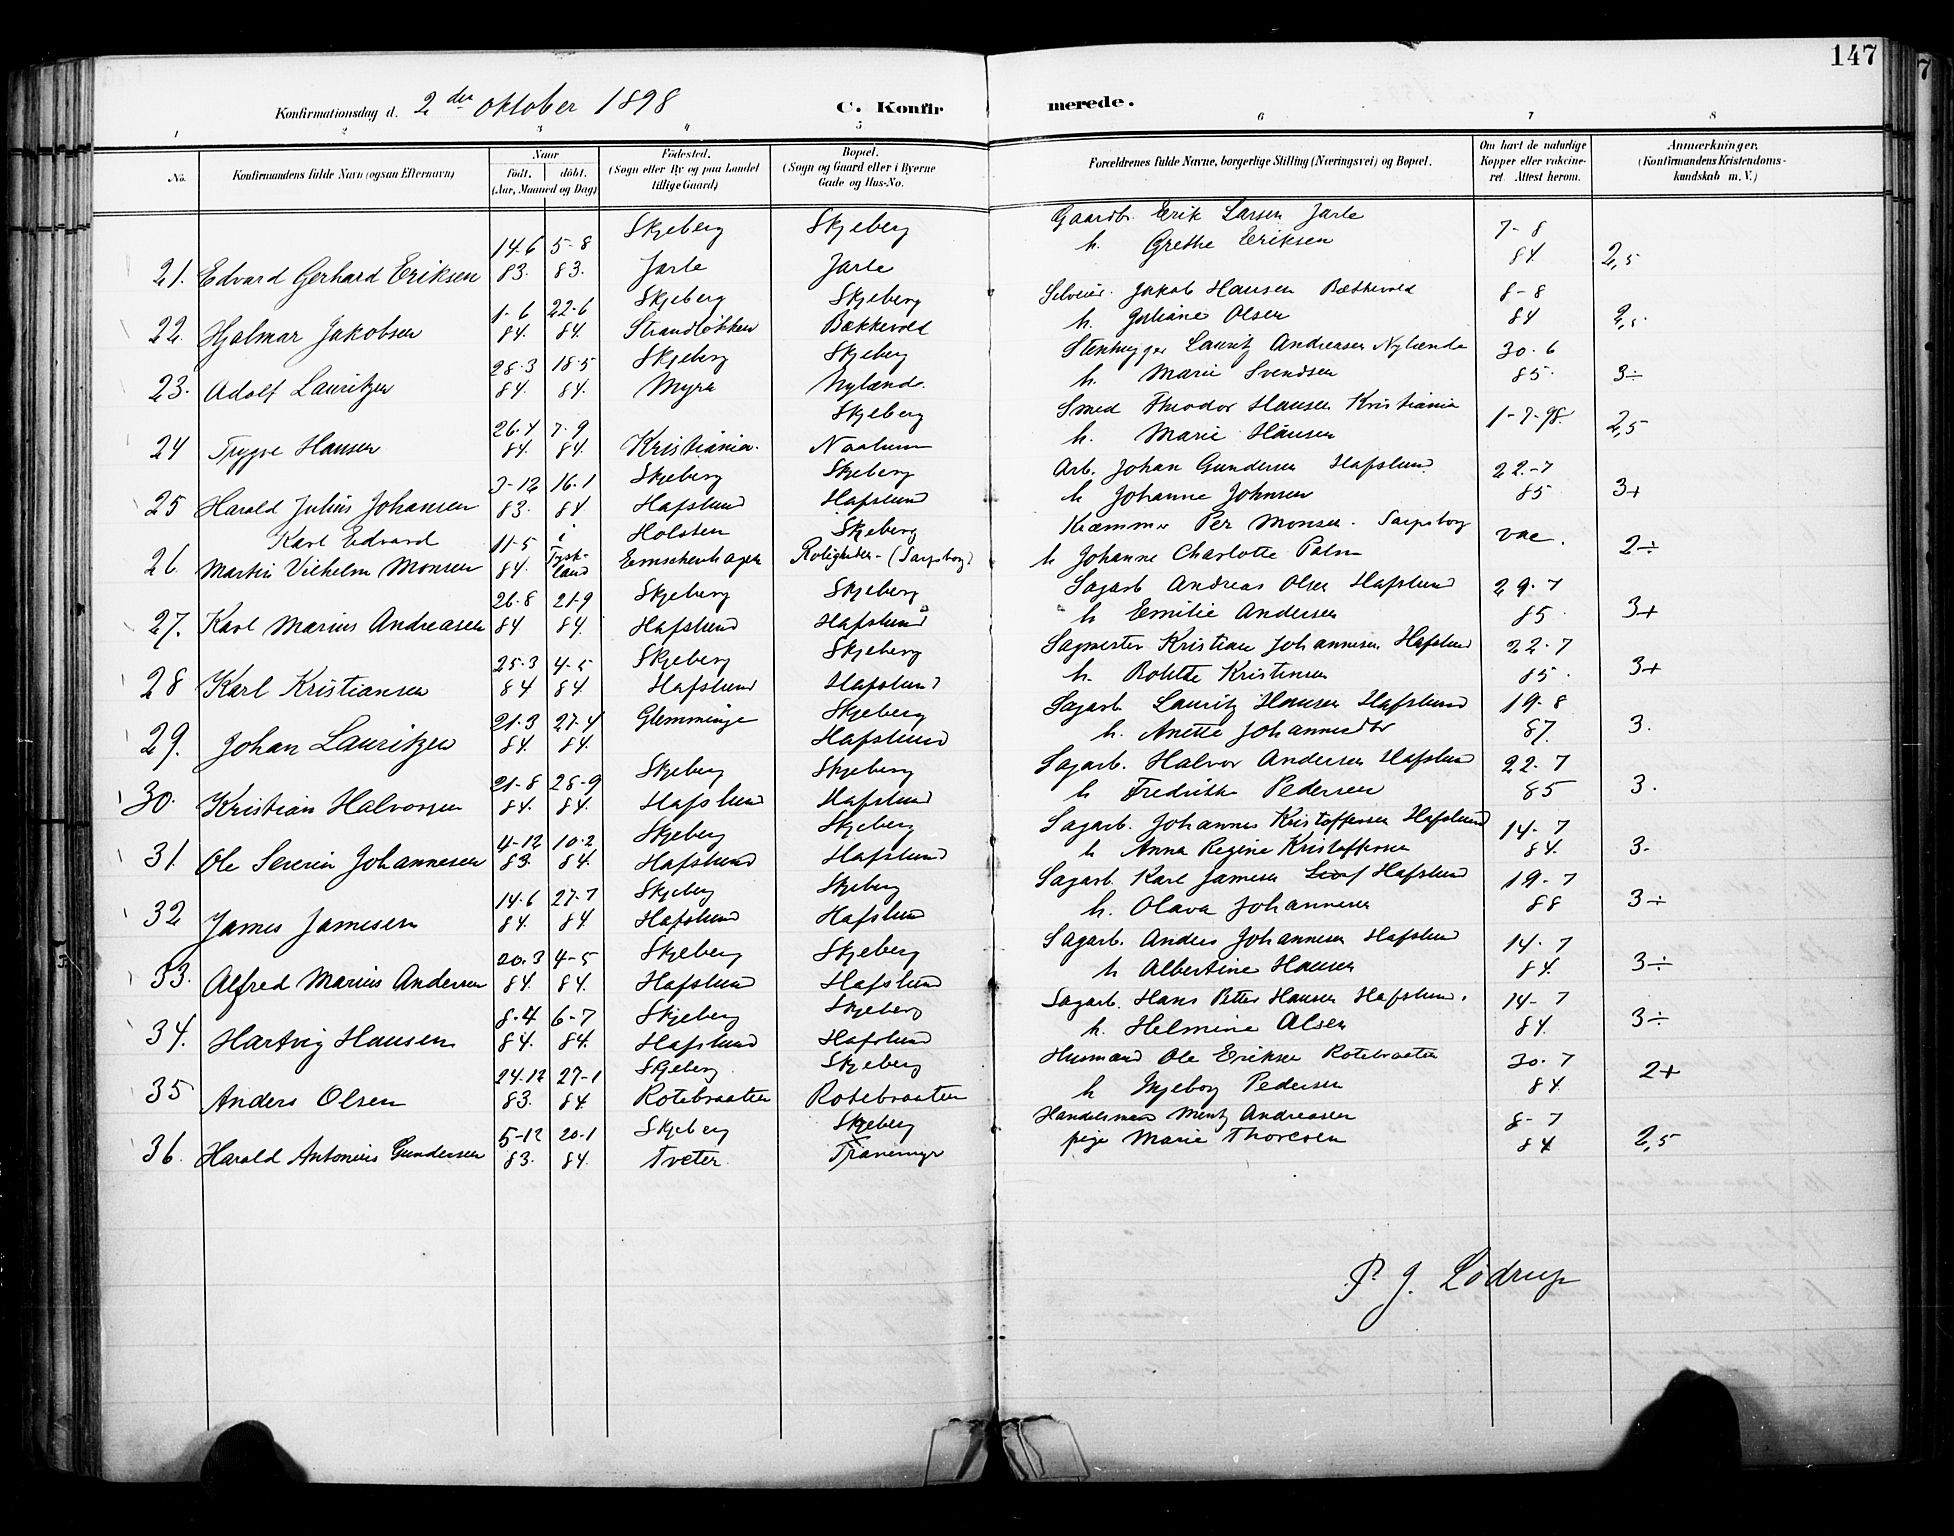 147
Konfirmationsdag d. 2den oktober 1898 C. Konfirmerede.
1 2 3 4 5 6 7 8
No. Konfirmandens fulde Navn (ogsaa Efternavn) Naar født, døbt. (Aar, Maaned og Dag) Fødested. (Sogn eller By og paa Landet tillige Gaard) Bopæl. (Sogn og Gaard eller i Byerne Gade og Hus-No. Forældrenes fulde Navne, borgerlige Stilling (Næringsvei) og Bopæl. Om havt de naturlige Kopper eller vakcineret. Attest herom. Anmærkninger. (Konfirmandens Kristendomskundskab m. V.)
14.6 5-8 Skjeberg Skjeberg Gaardbr. Erik Larsen Jarle 7-8
21. Edvard Gerhard Eriksen 83. 83. Jarle Jarle h. Grethe Eriksen 84 2,5
1-6 22-6 Skjeberg Skjeberg Selveier. Jakob Hansen Bækkevold 8-8
22. Hjalmar Jakobsen 84. 84. Strandløkken Bækkevold h. Juliane Olsen 84 2,5.
28.3 18.5 Skjeberg Skjeberg Stenhugger Lauritz Andreasen Nylænde 30.6
23. Adolf Lauritzen 84. 84. Myra Nylænd. h. Marie Svendsen 85. 3÷
26.4 7-9 Skjeberg Smed Theodor Hansen Kristiania 1-7-98.
24 Trygve Hansen 84. 84. Kristiania. Naalum h. Marie Hansen 2,5
3-12 16.1 Skjeberg Skjeberg Arb. Johan Gundersen Hafslund 22.-7
25 Harald Julius Johansen 83. 84 Hafslund Hafslund h Johanne Johnsen 85 3+
Karl Edvard 11-5 i Holsten Skjeberg Kræmmer Per Monsen. Sarpsborg vac.
26. Martin Vilhelm Monsen 84. Tyskland Emschenhagen Roligheden-(Sarpsborg) h Johanne Charlotte Palm 2÷
26.8 21-9 Skjeberg Skjeberg Sagarb Andreas Olsen Hafslund 29.7
27. Karl Marius Andreasen 84 84. Hafslund Hafslund h Emilie Andersen 85. 3+
25.3 4-5 Skjeberg Skjeberg Sagmester Kristian Johannesen Hafslund 22.7
28 Karl Kristiansen 84 84 Hafslund Hafslund h. Bolette Kristensen 85. 3+
21.3 27-4 Glemminge Skjeberg Sagarb Lauritz Hansen Hafslund 19-8
29. Johan Lauritzen 84. 84. Hafslund h. Anette Johannesdtr 87. 3.
21-8 28-9 Skjeberg Skjeberg Sagarb. Halvor Andersen Hafslund 22.7
30. Kristian Halvorsen 84. 84. Hafslund Hafslund h Fredrikke Pedersen 85 3.
4-12 10-2 Skjeberg Skjeberg Sagarb. Johannes Kristoffersen Hafslund 14-7
31. Ole Severin Johannesen 83. 84. Hafslund Hafslund h Anna Regine Kristoffersen 84. 3.
14.6 27-7 Skjeberg Skjeberg Sagarb. Karl Jamesen Hafslund 19-7
32 James Jamesen 84. 84 Hafslund Hafslund h. Olava Johannesen 88 3÷
20.3 4-5 Skjeberg Skjeberg Sagarb. Anders Johannesen Hafslund 14.7
33. Alfred Marius Andersen 84. 84. Hafslund Hafslund h Albertine Hansen 84. 3÷
8-4 6-7 Skjeberg Skjeberg Sagarb. Hans Petter Hansen Hafslund. 14-7
34. Hartvig Hansen 84. 84. Hafslund Hafslund h. Helmine Alsen 84. 3÷
24-12 27-1 Skjeberg. Skjeberg Husmand Ole Eriksen Rotebraaten 30.7
35 Anders Olsen 83. 84. Rotebraaten Rotebraaten h Ingeborg Pedersen 84. 2+
5-12 20-1 Skjeberg Skjeberg Handelsmand Mentz Andreasen 8-7
36. Harald Antonius Gundersen 83. 84. Tveter. Tranemyr pige Marie Thoresen 84 2,5
P. J. Lødrup